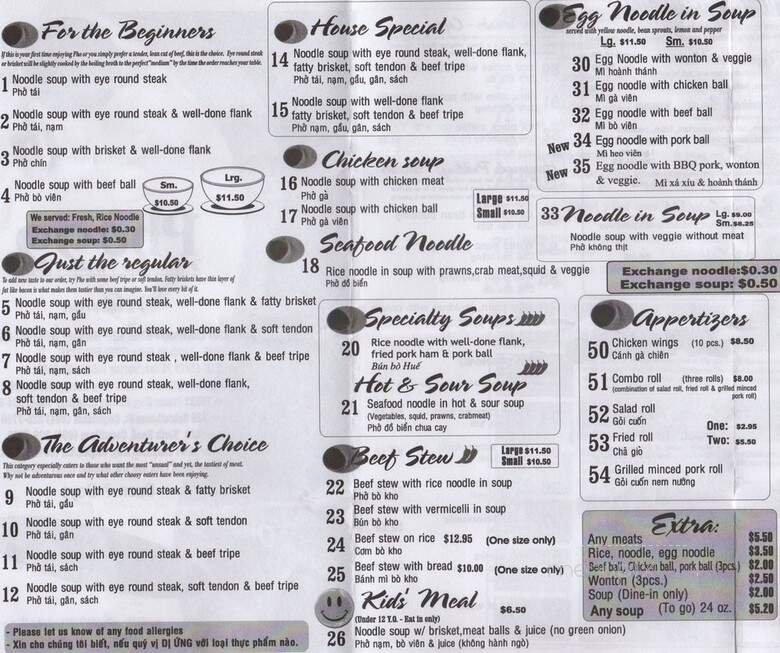 For the Beginners
If this is your first time enjoying Pho or you simply prefer a tender, lean cut of beef, this is the choice. Eye round steak
or brisket will be slightly cooked by the boiling broth to the perfect "medium" by the time the order reaches your table.
1 Noodle soup with eye round steak
Phở tái
2 Noodle soup with eye round steak & well-done flank
Phở tái, nạm
3 Noodle soup with brisket & well-done flank
Phở chín
4 Noodle soup with beef ball
Phở bò viên
Sm.
$10.50
Lrg.
$11.50
We served: Fresh, Rice Noodle
Exchange noodle: $0.30
Exchange soup: $0.50
Just the regular
To add new taste to our order, try Pho with some beef tripe or soft tendon. Fatty briskets have thin layer of
fat like bacon is what makes them tastier than you can imagine. You'll love every bit of it.
5 Noodle soup with eye round steak, well-done flank & fatty brisket
Phở tái, nạm, gầu
6 Noodle soup with eye round steak, well-done flank & soft tendon
Phở tái, nạm, gân
7 Noodle soup with eye round steak , well-done flank & beef tripe
Phở tái, nạm, sách
8 Noodle soup with eye round steak, well-done flank,
soft tendon & beef tripe
Phở tái, nạm, gân, sách
The Adventurer's Choice
This category especially caters to those who want the most "unusual" and yet, the tastiest of meat.
Why not be adventurous once and try what other choosy eaters have been enjoying.
9 Noodle soup with eye round steak & fatty brisket
Phở tái, gầu
10 Noodle soup with eye round steak & soft tendon
Phở tái, gân
11 Noodle soup with eye round steak & beef tripe
Phở tái, sách
12 Noodle soup with eye round steak, soft tendon & beef tripe
Phở tái, gân, sách
- Please let us know of any food allergies
- Xin cho chúng tôi biết, nếu quý vị DỊ ỨNG với loại thực phẩm nào.
House Special
14 Noodle soup with eye round steak, well-done flank,
fatty brisket, soft tendon & beef tripe
Phở tái, nạm, gầu, gân, sách
15 Noodle soup with well-done flank
fatty brisket, soft tendon & beef tripe
Phở nạm, gầu, gân, sách
Chicken soup
16 Noodle soup with chicken meat
Phở gà
17 Noodle soup with chicken ball
Phở gà viên
Large $11.50
Small $10.50
Seafood Noodle
18 Rice noodle in soup with prawns,crab meat,squid & veggie
Phở đồ biển
Specialty Soups
20 Rice noodle with well-done flank,
fried pork ham & pork ball
Bún bò Huế
Hot & Sour Soup
21 Seafood noodle in hot & sour soup
(Vegetables, squid, prawns, crabmeat)
Phở đồ biển chua cay
Beef Stew
Large $11.50
Small $10.50
22 Beef stew with rice noodle in soup
Phở bò kho
23 Beef stew with vermicelli in soup
Bún bò kho
24 Beef stew on rice $12.95 (One size only)
Cơm bò kho
25 Beef stew with bread $10.00 (One size only)
Bánh mì bò kho
Kids' Meal
(Under 12 Y.O. - Eat in only)
$6.50
26 Noodle soup w/ brisket,meat balls & juice (no green onion)
Phở nạm, bò viên & juice (không hành ngò)
Egg Noodle in Soup
served with yellow noodle, bean sprouts, lemon and pepper
Lg. $11.50 Sm. $10.50
30 Egg Noodle with wonton & veggie
Mì hoành thánh
31 Egg noodle with chicken ball
Mì gà viên
32 Egg noodle with beef ball
Mì bò viên
New 34 Egg noodle with pork ball
Mì heo viên
New 35 Egg noodle with BBQ pork, wonton
& veggie. Mì xá xíu & hoành thánh
33 Noodle in Soup Lg. $9.00
Sm.$8.25
Noodle soup with veggie without meat
Phở không thịt
Exchange noodle:$0.30
Exchange soup: $0.50
Appertizers
50 Chicken wings (10 pcs.) $8.50
Cánh gà chiên
51 Combo roll (three rolls) $8.00
(combination of salad roll, fried roll & grilled minced
pork roll)
52 Salad roll
Gỏi cuốn
One: $2.95
53 Fried roll
Two: $5.50
Chả giò
54 Grilled minced pork roll
Gỏi cuốn nem nướng
Extra:
Any meats $5.50
Rice, noodle, egg noodle $3.50
Beef ball, Chicken ball, pork ball (3pcs.) $2.00
Wonton (3pcs.) $2.50
Soup (Dine-in only) $2.00
Any soup (To go) 24 oz. $5.20